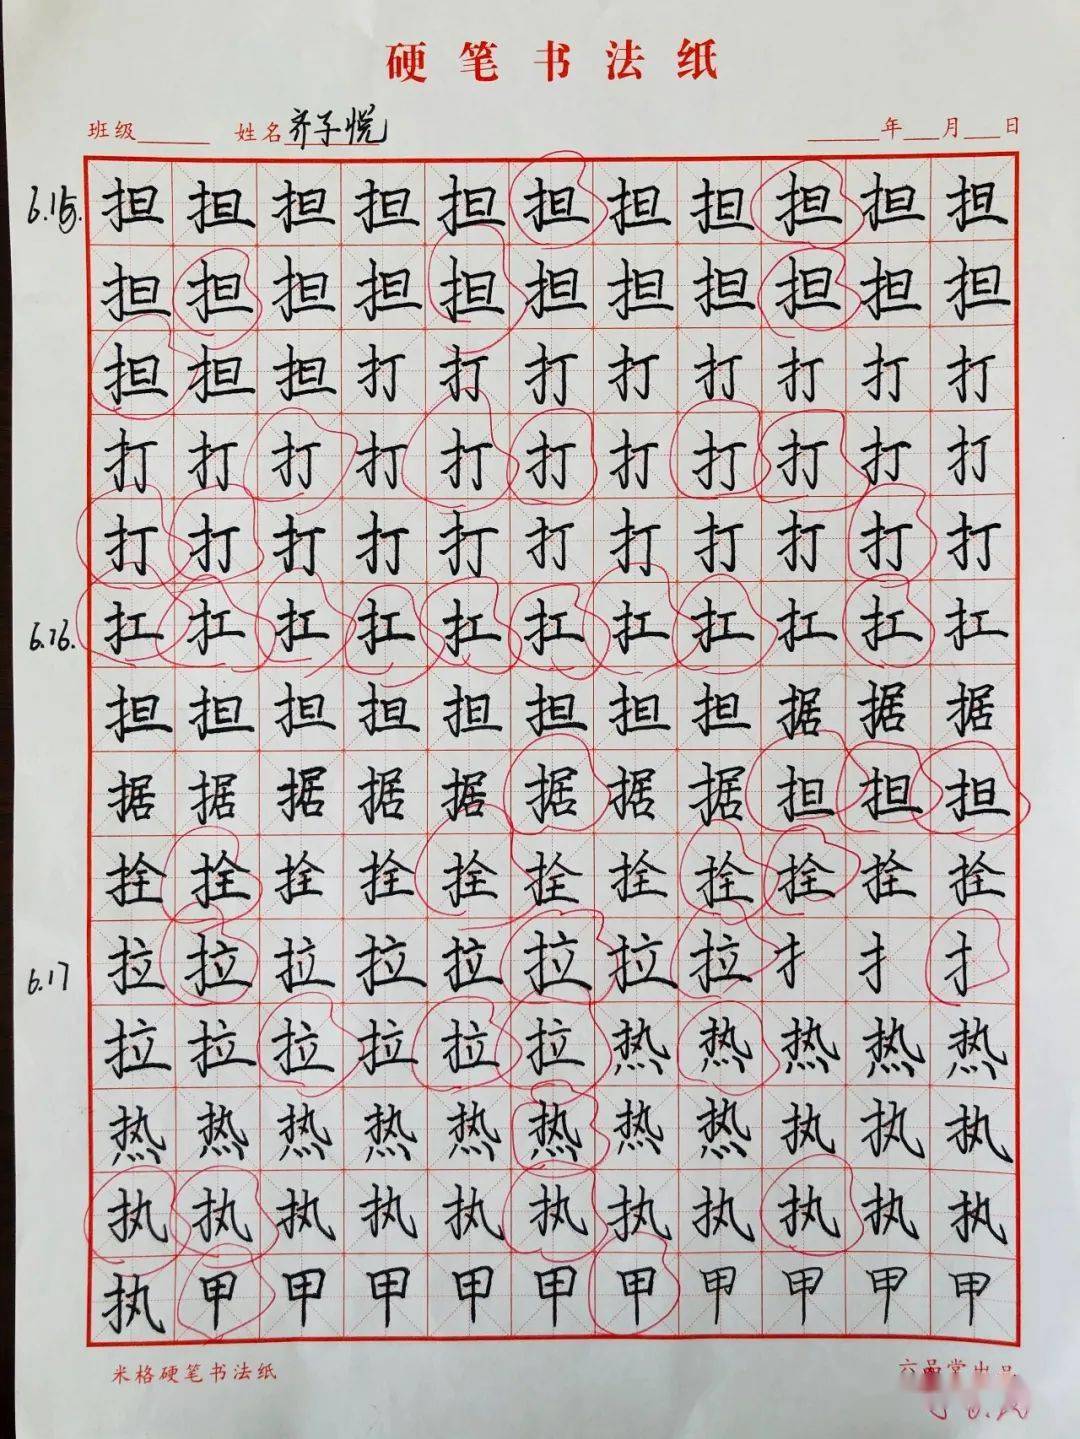 硬笔书法纸
班级 姓名 齐子悦 年 月 日
6.15. 担担担担担担担担担担担
担担担担担担担担担担担
担担担打打打打打打打打
打打打打打打打打打打打
打打打打打打打打打打打
6.16. 扛扛扛扛扛扛扛扛扛扛扛
担担担担担担担担据据据
据据据据据据据据担担担
拴拴拴拴拴拴拴拴拴拴拴
6.17 拉拉拉拉拉拉拉拉扌扌扌
拉拉拉拉拉拉热热热热热
热热热热热热热热执执执
执执执执执执执执执执执
执甲甲甲甲甲甲甲甲甲甲
米格硬笔书法纸 六品堂出品